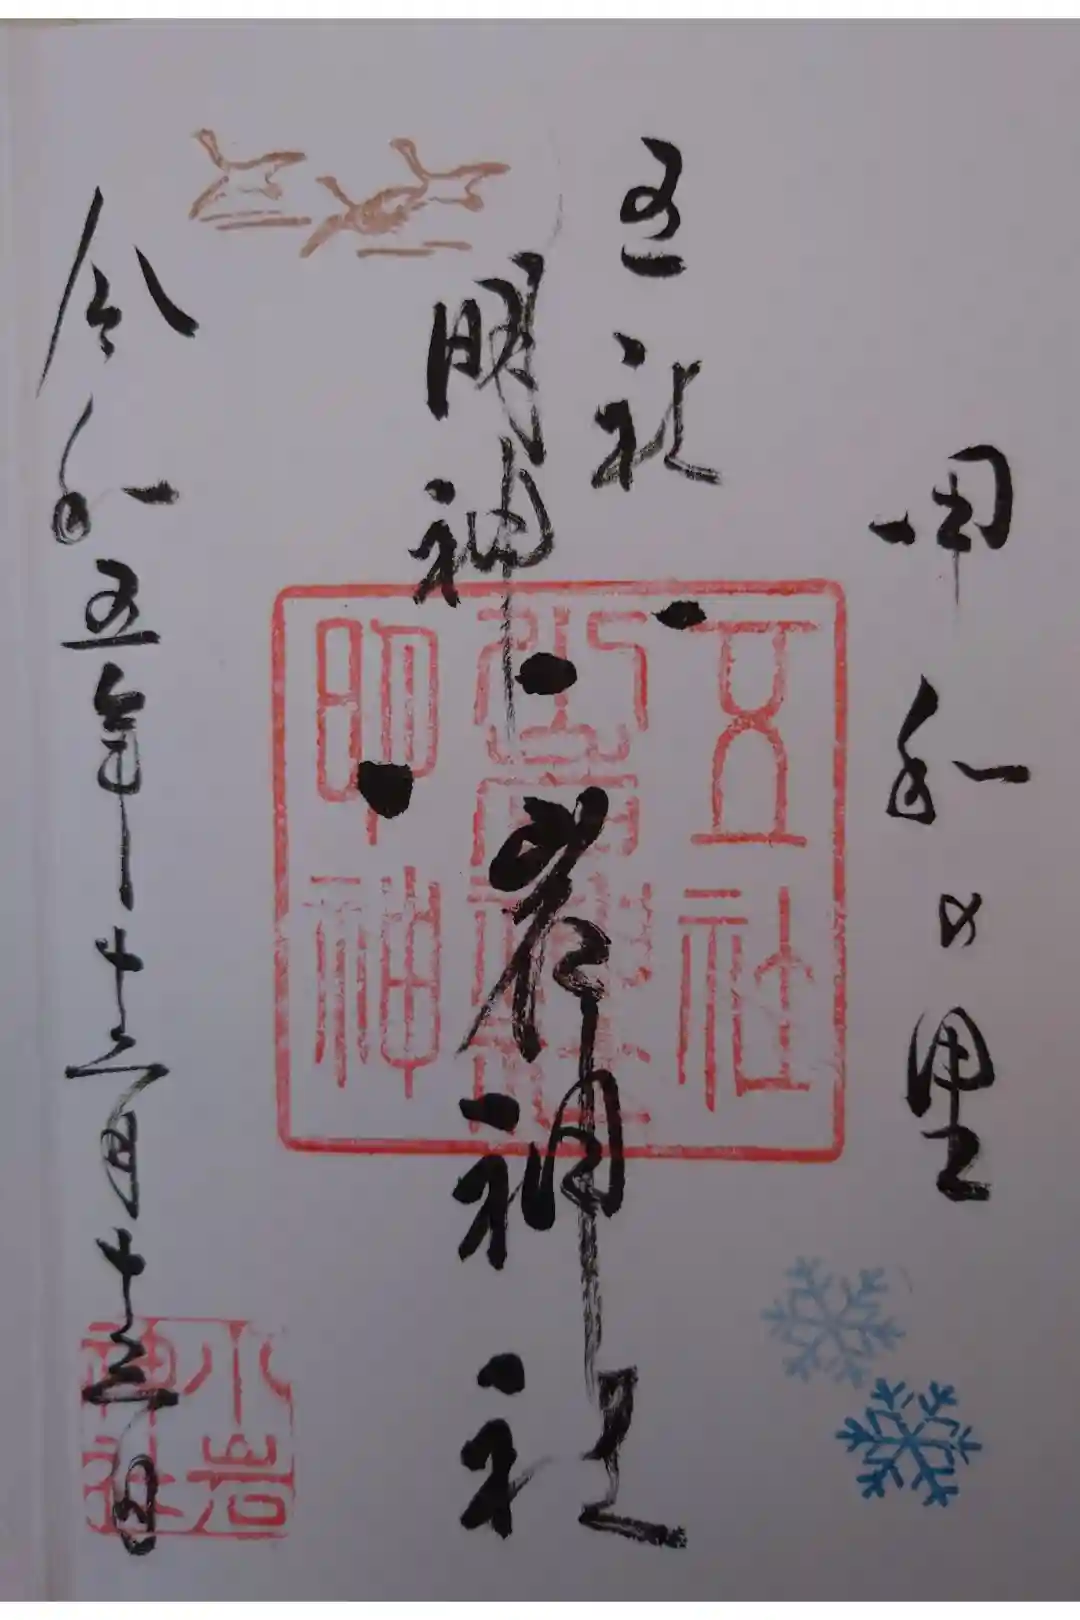 甲和の里
五社
明神
小岩神社
令和五年十二月十三日
五社
明神
小岩
神社